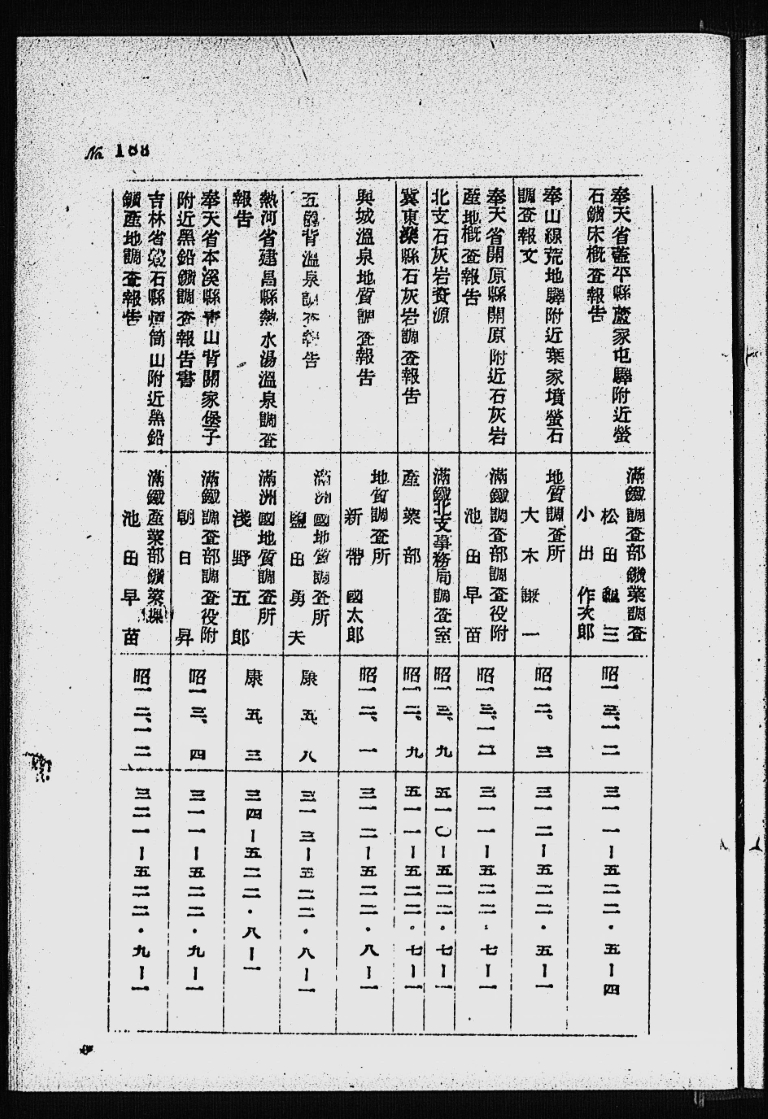 No. 168
奉天省蓋平縣蘆家屯驛附近螢
石鑛床概査報告
滿鐵調査部鑛業調査
松田龜三
小出作次郎
昭一三、一二
三一一―五二二・五―四
奉山線荒地驛附近葉家墳螢石
調査報文
地質調査所
大木謙一
昭一二、三
三一二―五二二・五―一
奉天省開原縣開原附近石灰岩
產地概査報告
滿鐵調査部調査役附
池田早苗
昭一三、一二
三一一―五二二・七―一
北支石灰岩資源
滿鐵北支事務局調査室
昭一三、九
五一〇―五二二・七―一
冀東灤縣石灰岩調査報告
產業部
昭一二、九
五一一―五二二・七―一
興城溫泉地質調査報告
地質調査所
新帶國太郎
昭一二、一
三一二―五二二・八―一
五龍背溫泉調査報告
滿洲國地質調査所
鹽田勇夫
康五、八
三一三―五二二・八―一
熱河省建昌縣熱水湯溫泉調査
報告
滿洲國地質調査所
淺野五郎
康五、三
三四―五二二・八―一
奉天省本溪縣青山背關家堡子
附近黑鉛鑛調査報告書
滿鐵調査部調査役附
朝日昇
昭一三、四
三一一―五二二・九―一
吉林省磐石縣煙筒山附近黑鉛
鑛產地調査報告
滿鐵產業部鑛業課
池田早苗
昭一二、一二
三二一―五二二・九―一